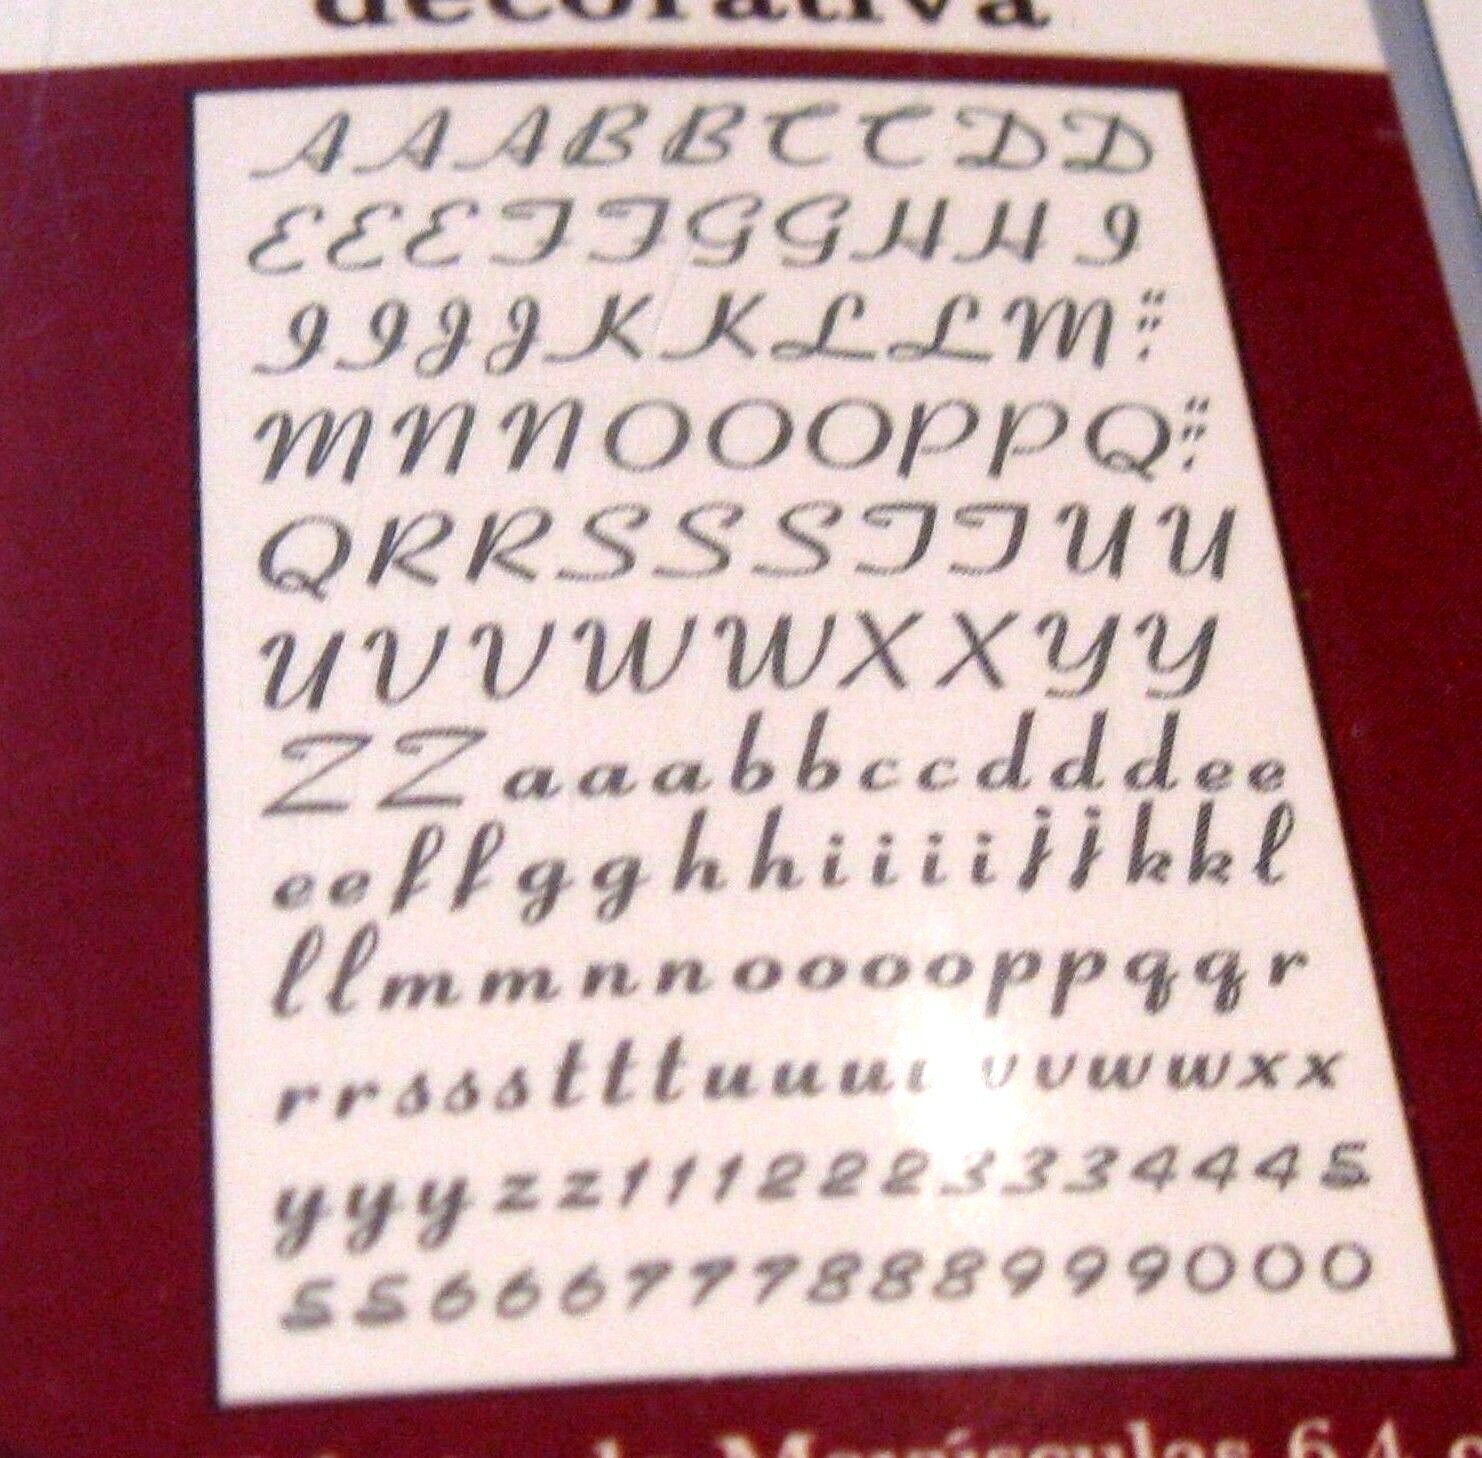 decorativa
A A A B B C C D D
E E E F F G G H H I
I I J J K K L L M " " .
M N N O O O P P Q " " .
Q R R S S S T T U U
U V V W W X X Y Y
Z Z a a a b b c c d d d e e
e e f f g g h h i i i i j j k k l
l l m m n n o o o o p p q q r
r r s s s t t t u u u v v w w x x
y y y z z 1 1 1 2 2 2 3 3 3 4 4 4 5
5 5 6 6 6 7 7 7 8 8 8 9 9 9 0 0 0
Mayúsculas 6.4